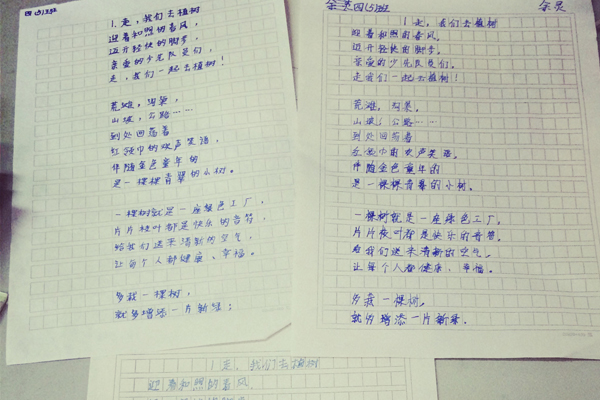 四(5)班
1.走,我们去植树
迎着和煦的春风,
迈开轻快的脚步,
亲爱的少先队员们,
走,我们一起去植树!
荒滩,沟渠,
山坡,公路……
到处回荡着
红领巾的欢声笑语,
伴随金色童年的
是一棵棵青翠的小树。
一棵树就是一座绿色工厂,
片片枝叶都是快乐的音符,
给我们送来清新的空气,
让每个人都健康、幸福。
多栽一棵树,
就多增添一片新绿;
余灵四(5)班
余灵
1.走,我们去植树
迎着和煦的春风。
迈开轻快的脚步。
亲爱的少先队员们。
走我们一起去植树!
荒滩,沟渠。
山坡,公路……
到处回荡着
红领巾的欢声笑语。
伴随金色童年的
是一棵棵青翠的小树。
一棵树就是一座绿色工厂。
片片枝叶都是快乐的音符。
给我们送来清新的空气。
让每个人都健康、幸福。
多栽一棵树。
就多增添一片新绿.
1.走,我们去植树
迎着和煦的春风.